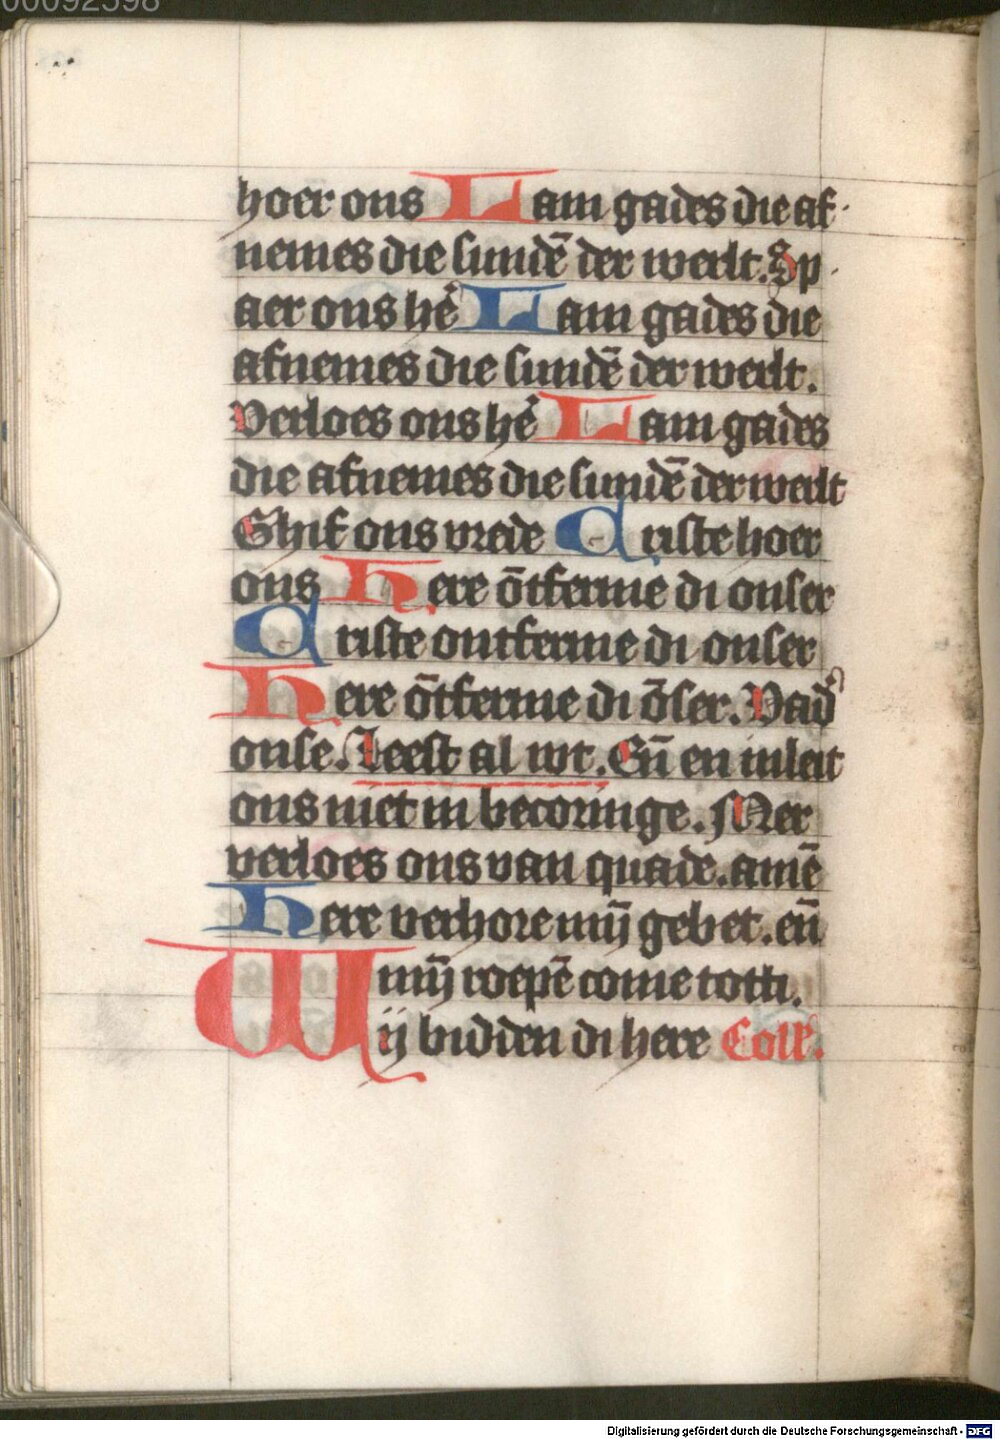 00092598
hoer ons Lam gades die af
nemes die sundē der werlt. Sp
aer ons hē Lam gades die
afnemes die sundē der werlt.
Verloes ons hē Lam gades
die afnemes die sundē der werlt
Ghif ons vrede Criste hoer
ons Here ōtferme di onser
Criste ontferme di onser
Here ōtferme di ōser. Vad'
onse. Leest al wt. En̄ en inleit
ons niet in becoringe. Mer
verloes ons van quade. amē
Here verhore mȳ gebet. en̄
mȳ roepē come totti.
Wij bidden di here Coll'.
Digitalisierung gefördert durch die Deutsche Forschungsgemeinschaft - DFG